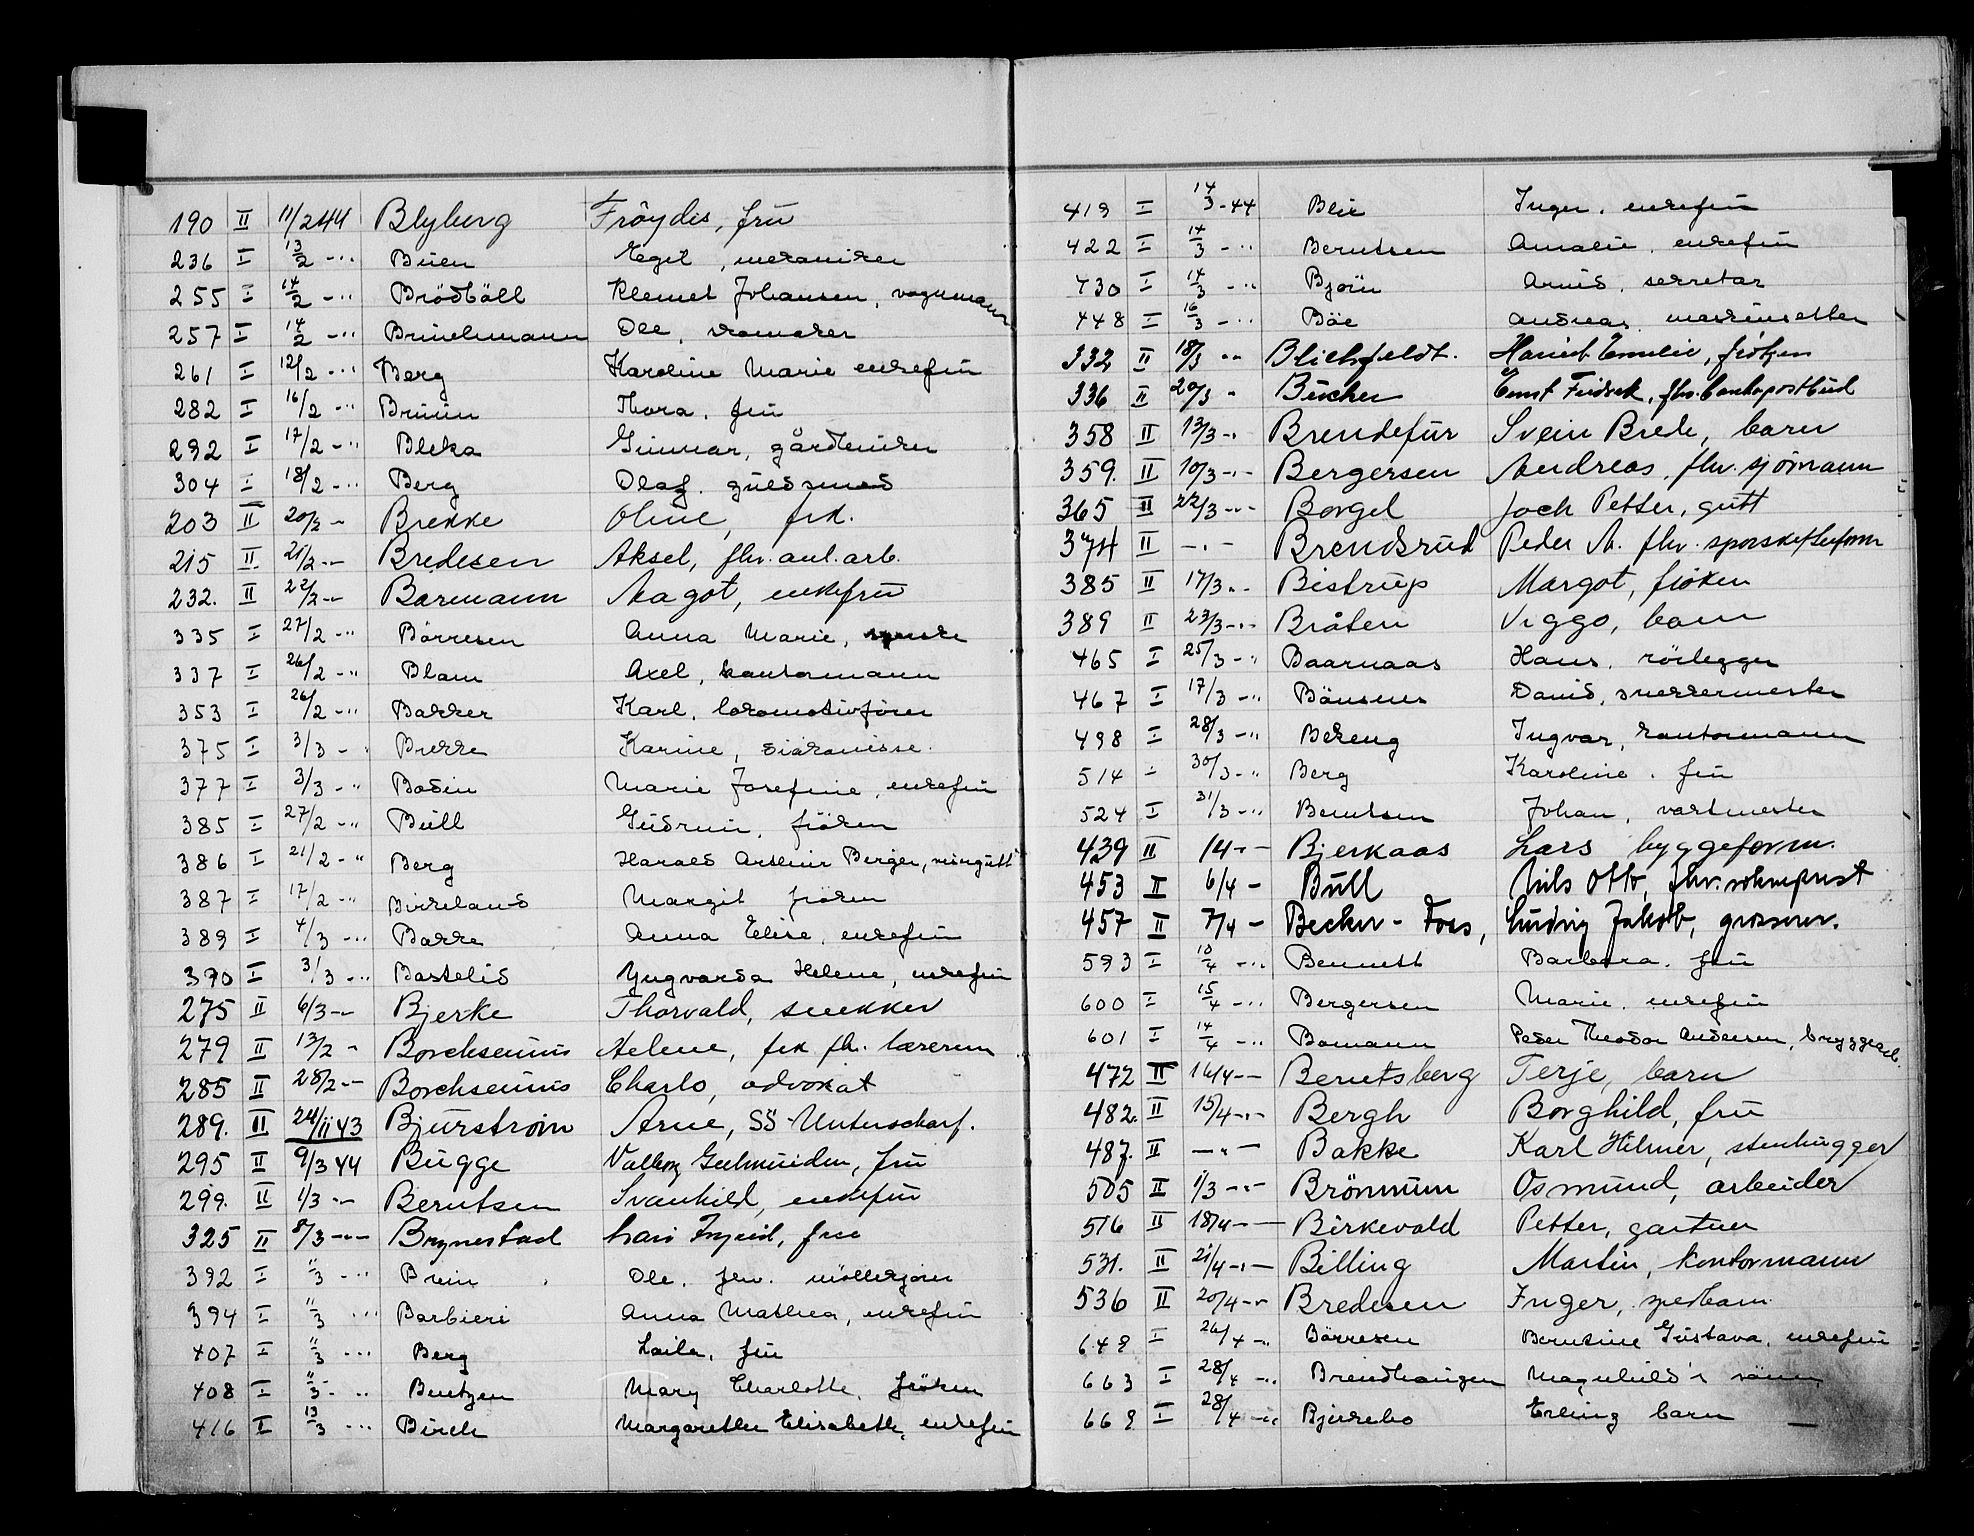 190 II 11/2 44 Blyberg Fröydis, fru
236 I 13/2 -"- Buen Egil, mekaniker
255 I 14/2 -"- Brödböll Klemet Johansen, vognmann
257 I 14/2 -"- Brinchmann Ole, skomaker
261 I 12/2 -"- Berg Karoline Marie enkefru
282 I 16/2 -"- Bruun Thora, fru
292 I 17/2 -"- Bleka Gunnar, gårdeier
304 I 18/2 -"- Berg Olaf. gullsmed
203 II 20/2 -"- Brekke Oline, frk.
215 II 21/2 -"- Bredesen Aksel, fhv. anl. arb.
232. II 22/2 -"- Barmann Aagot, enkefru
335 I 27/2 -"- Börresen Anna Marie,
337 I 26/2 -"- Blam Axel, kontormann
353 I 26/2 -"- Bakker Karl, lokomotivförer
375 I 3/3 -"- Brekke Karine, diakonisse.
377 I 3/3 -"- Bodin Marie Josefine, enkefru
385 I 27/2 -"- Bull Gudrun, fröken
386 I 21/2 -"- Berg Harald Arthur Berger, visergutt
387 I 17/2 -"- Birkeland Margit fröken
389 I 4/3 -"- Bakke Anna Elise, enkefru
390 I 3/3 -"- Bastelid Yngvarda Helene, enkefru
275 II 6/3 -"- Bjerke Thorvald, snekker
279 II 13/2 -"- Borchsenius Helene, frk fh. lærerin
285 II 28/2 -"- Borchsenius Charlo, advokat
289. II 24/11 43 Bjurstrom Arne, SS-Unterscharf.
295 II 9/3 44 Bugge Valborg, fru
299. II 1/3 -"- Berntsen Svanhild, enkefru
325 II 8/3 -"- Brynestad Kari Ingrid, frue
392 I 11/3 -"- Brein Ole, fhv. möllerförer
394 I 11/3 -"- Barbieri Anna Mathea, enkefru
407 I 11/3 -"- Berg Laila, fru
408 I 11/3 -"- Bentzen Mary Charlotte, fröken
416 I 13/3 -"- Birch Margarethe Elisabeth, enkefru
419 I 14/3 -44 Blix Inger, enkefru
422 I 14/3 -"- Berntsen Amalie, enkefru
430 I 14/3 -"- Björn Arnid, sekretær
448 I 16/3 -"- Böe Andreas, maskinsetter
332 II 18/3 -"- Blichfeldt. Harriet Emelie, fröken
336 II 20/3 " Bucher Ernst Fredrik, fhv. bankopostbud
358 II 13/3 -"- Brendefur Svein Brede, barn
359. II 10/3 -"- Bergersen Andreas, fhv. sjömann
365 II 22/3 -"- Borgel Jack Petter, gutt
374 II -"- Brendsrud Peder M. fhv.
385 II 17/3 -"- Bistrup Margot, fröken
389 II 23/3 -"- Bråten Viggo, barn
465 I 25/3 -"- Baarnaas Hans, rörlegger
467 I 17/3 -"- Bönsnes David, snekkermester
498 I 28/3 -"- Bekeng Ingvar, kontormann
514 I 30/3 -"- Berg Karoline, fru
524 I 31/3 -"- Berntsen Johan, vaktmester
439 II 1/4 -"- Bjerkaas Lars byggeform.
453 II 6/4 - Bull Nils Otto, fhv. sokneprest
457 II 7/4 - Becker - Foss, Ludvig Jakob, grosserer.
593 I 13/4 -"- Bennett Barbara, fru
600 I 15/4 -"- Bergersen Marie, enkefru
601 I 14/4 -"- Bomann Peder Theodor Andersen, bryggearb.
472 II 16/4 -- Berntsberg Terje, barn
482. II 15/4 -"- Bergh Borghild, fru
487. II -"- Bakke Karl Hilmer, stenhugger
505 II 1/3 -"- Brönmum Osmund, arbeider
516 II 18/4 -"- Birkevold Petter, gartner
531. II 21/4 -"- Billing Martin, kontormann
536 II 20/4 -"- Bredesen Inger, spedbarn
649 I 26/4 -"- Börresen Berntine Gustava, enkefru
663 I 28/4 -"- Brendhaugen Magnhild's sönn
669 I 28/4 -"- Bjerkebo Erling barn